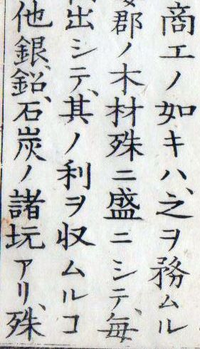 商工ノ如キハ、之ヲ務ムル
郡ノ木材殊ニ盛ニシテ、毎
出シテ、其ノ利ヲ収ムルコ
他銀、鉛、石炭ノ諸坑アリ、殊